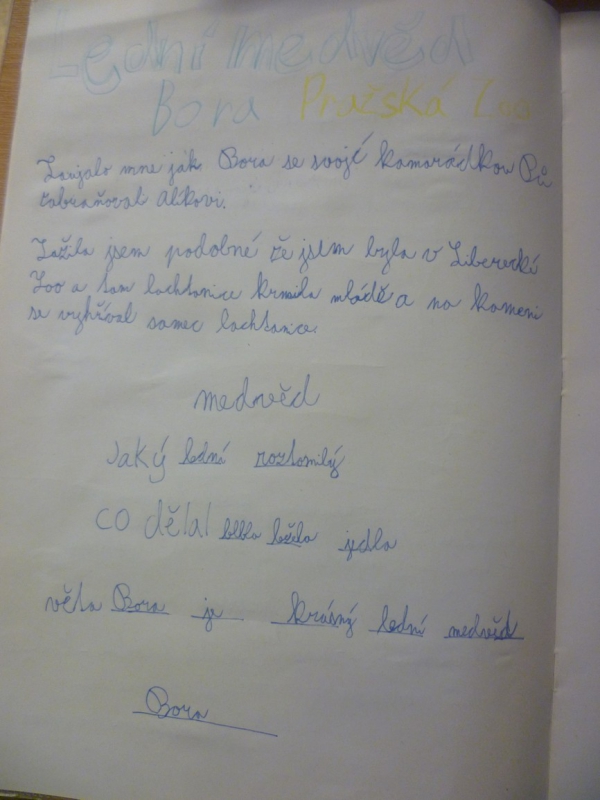 Lední medvěd
Bora Pražská Zoo
Zaujalo mne jak Bora se svojí kamarádkou
zabraňoval Alíkovi.
Zažila jsem podobné že jsem byla v Liberecké
Zoo a tam lachtanice krmila mládě a na kameni
se vyhříval samec lachtanice.
medvěd
Jaký lední roztomilý
co dělal ležela jedla
věta Bora je krásný lední medvěd
Bora